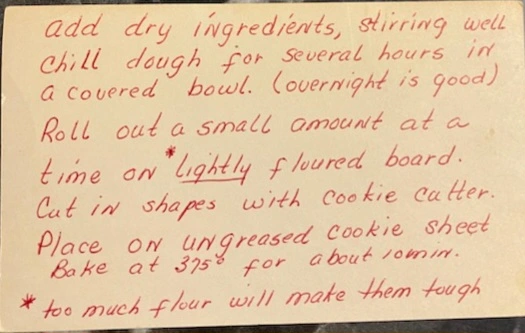 add dry ingredients, stirring well
chill dough for several hours in
a covered bowl. (overnight is good)
Roll out a small amount at a
time on *lightly floured board.
Cut in shapes with cookie cutter.
Place on ungreased cookie sheet
Bake at 375° for about 10 min.
* too much flour will make them tough